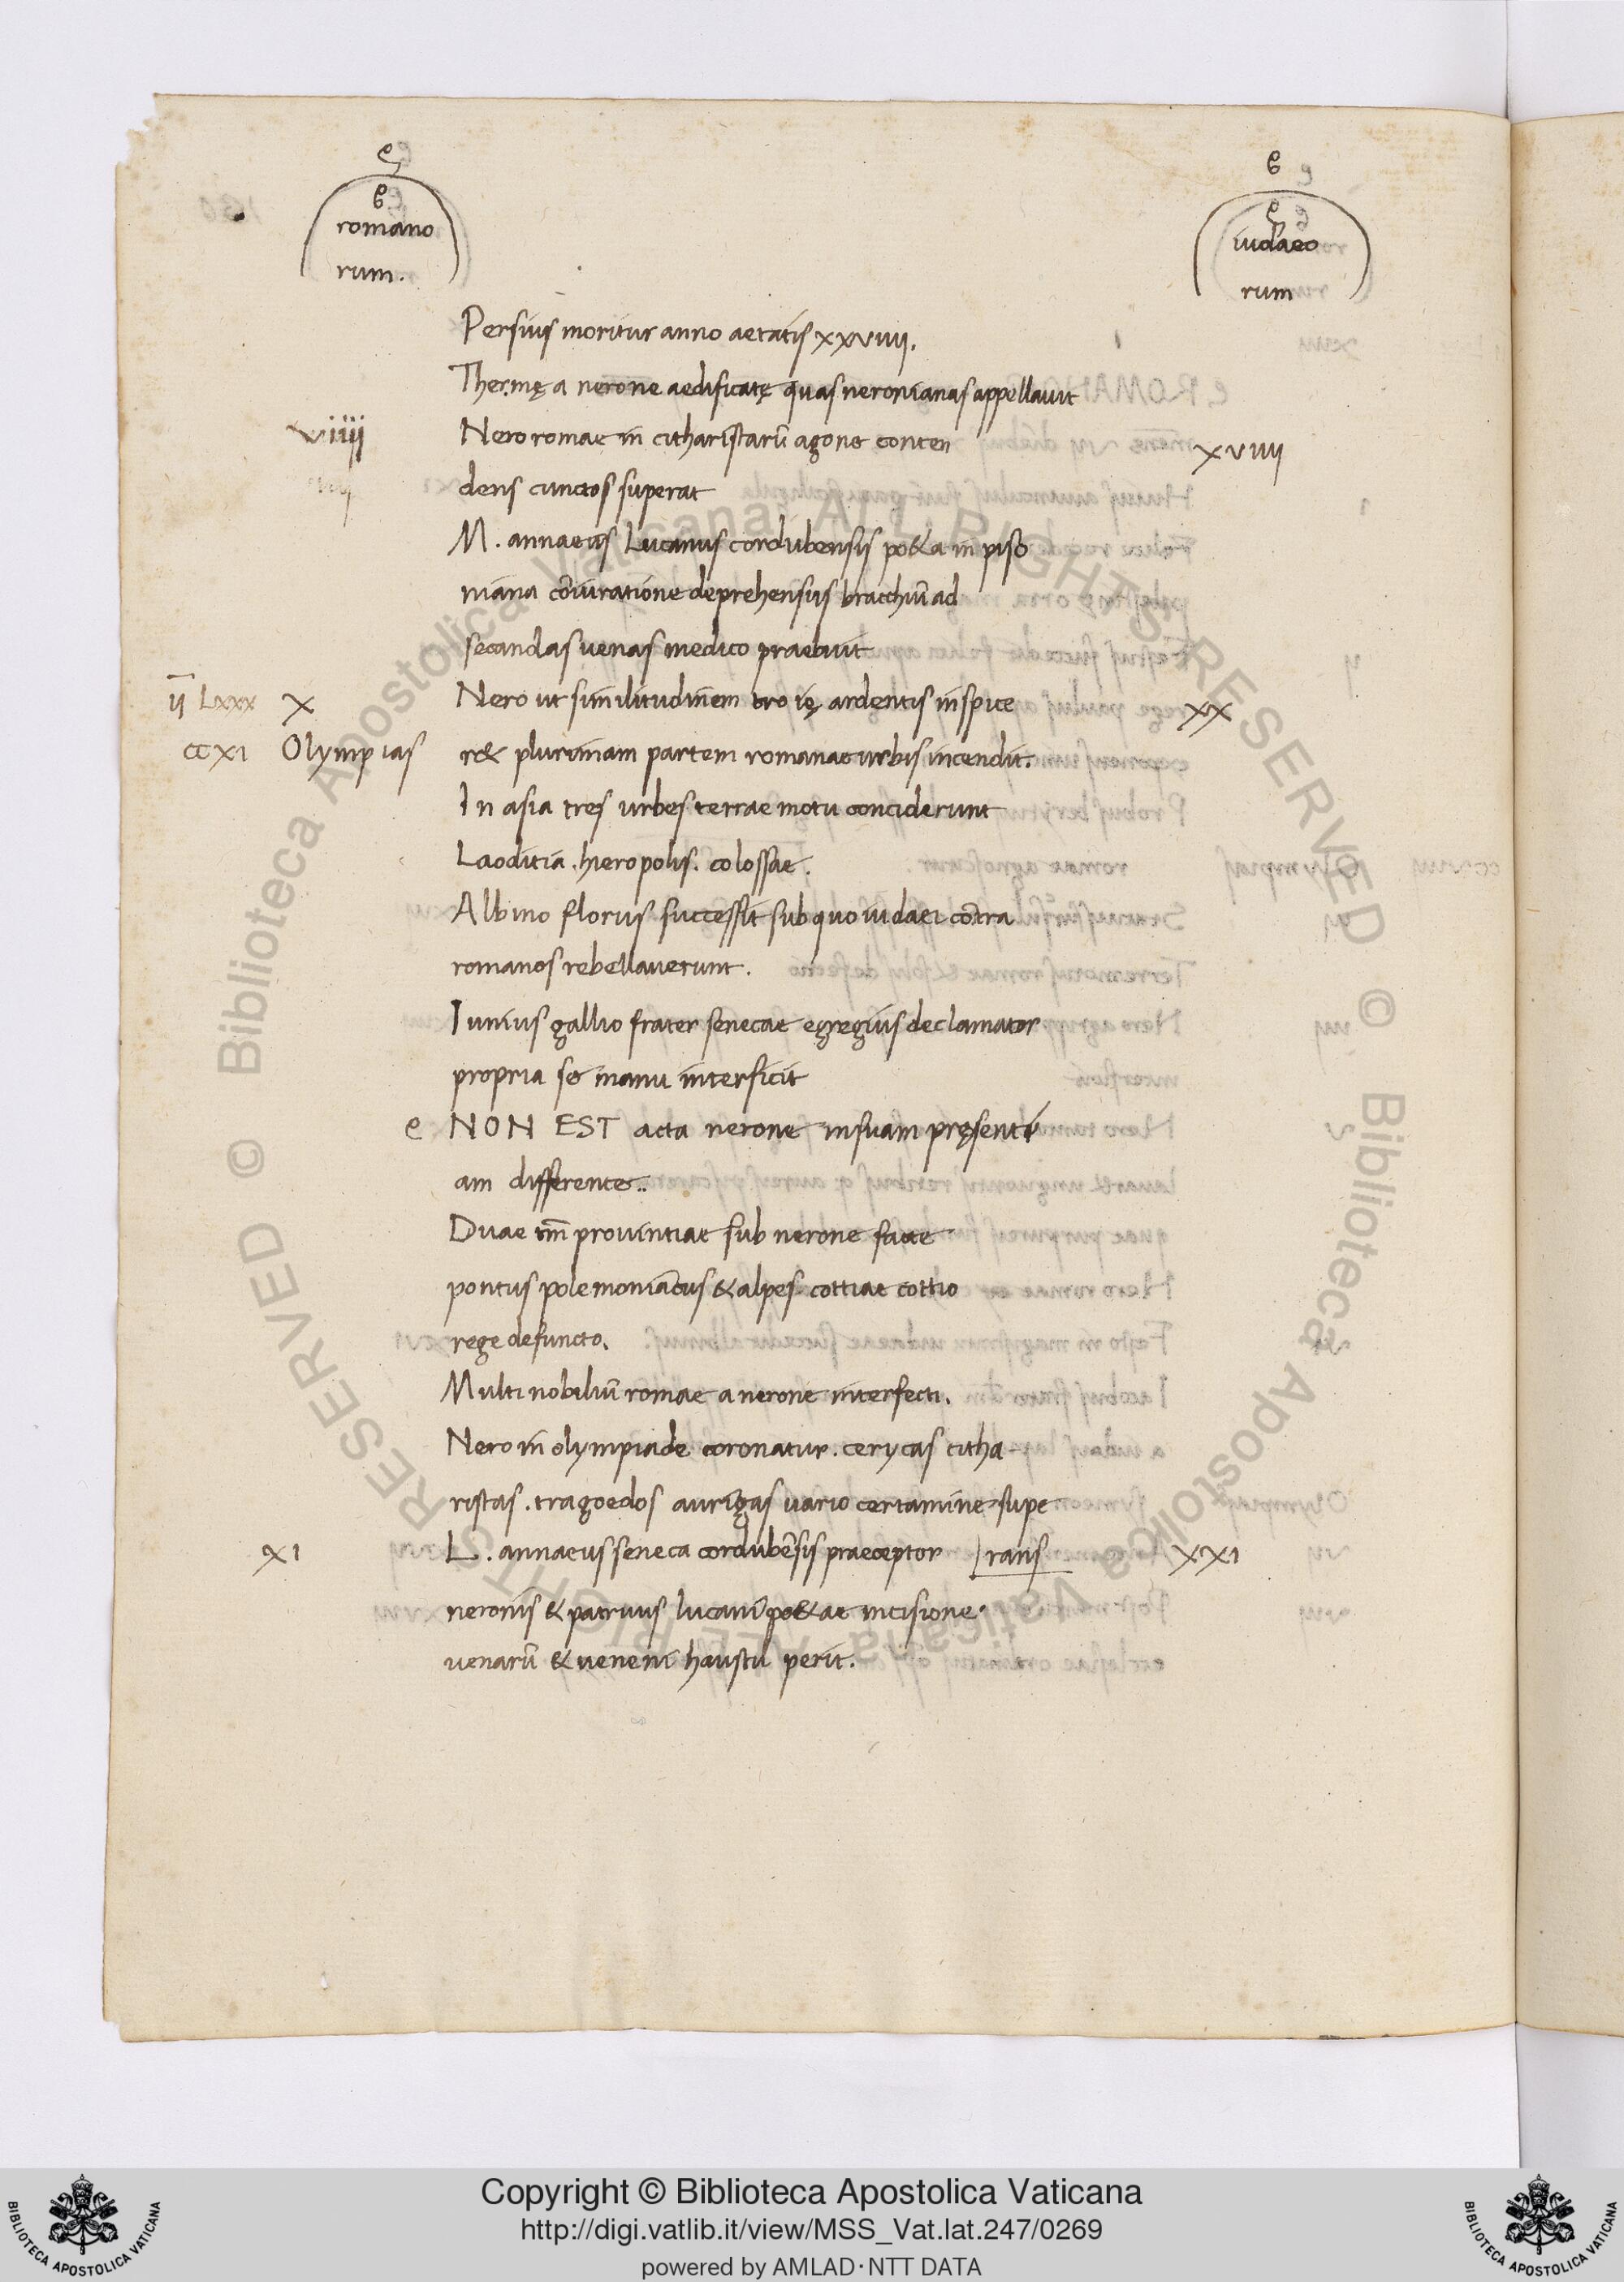 romano
rum.
iudaeo
rum
Persius moritur anno aetatis xxviiii.
Thermę a nerone aedificatę quas neronianas appellauit
viiii Nero romae in citharistarū agone conten xviiii
dens cunctos superat
M. annaeus Lucanus cordubensis po&a in piso
niana cōiuratione deprehensus bracchiū ad
secandas uenas medico praebuit
ii Lxxx x Nero ut similitudinem troię ardentis inspice xx
ccxi Olympias r& plurimam partem romanae urbis incendit.
In asia tres urbes terrae motu conciderunt
Laoditia. hieropolis. colossae.
Albino florus successit sub quo iudaei contra
romanos rebellauerunt.
Iunius gallio frater senecae egregius declamator
propria se manu interficit
e NON EST acta nerone in suam pręsenti
am differente..
Duae tm̄ prouintiae sub nerone factae
pontus polemoniacus & alpes cottiae cottio
rege defuncto.
Multi nobiliū romae a nerone interfecti.
Nero in olympiade coronatur. cerycas citha
ristas. tragoedos aurigas uario certamine supe
xi L. annaeus seneca cordubēsis praeceptor rans xxi
neronis & patruus lucani po&ae incisione
uenarū & ueneni haustu perit.
© Biblioteca Apostolica Vaticana ALL RIGHTS RESERVED © Biblioteca Apostolica Vaticana ALL RIGHTS RESERVED
Copyright © Biblioteca Apostolica Vaticana
http://digi.vatlib.it/view/MSS_Vat.lat.247/0269
powered by AMLAD·NTT DATA
BIBLIOTECA APOSTOLICA VATICANA
BIBLIOTECA APOSTOLICA VATICANA